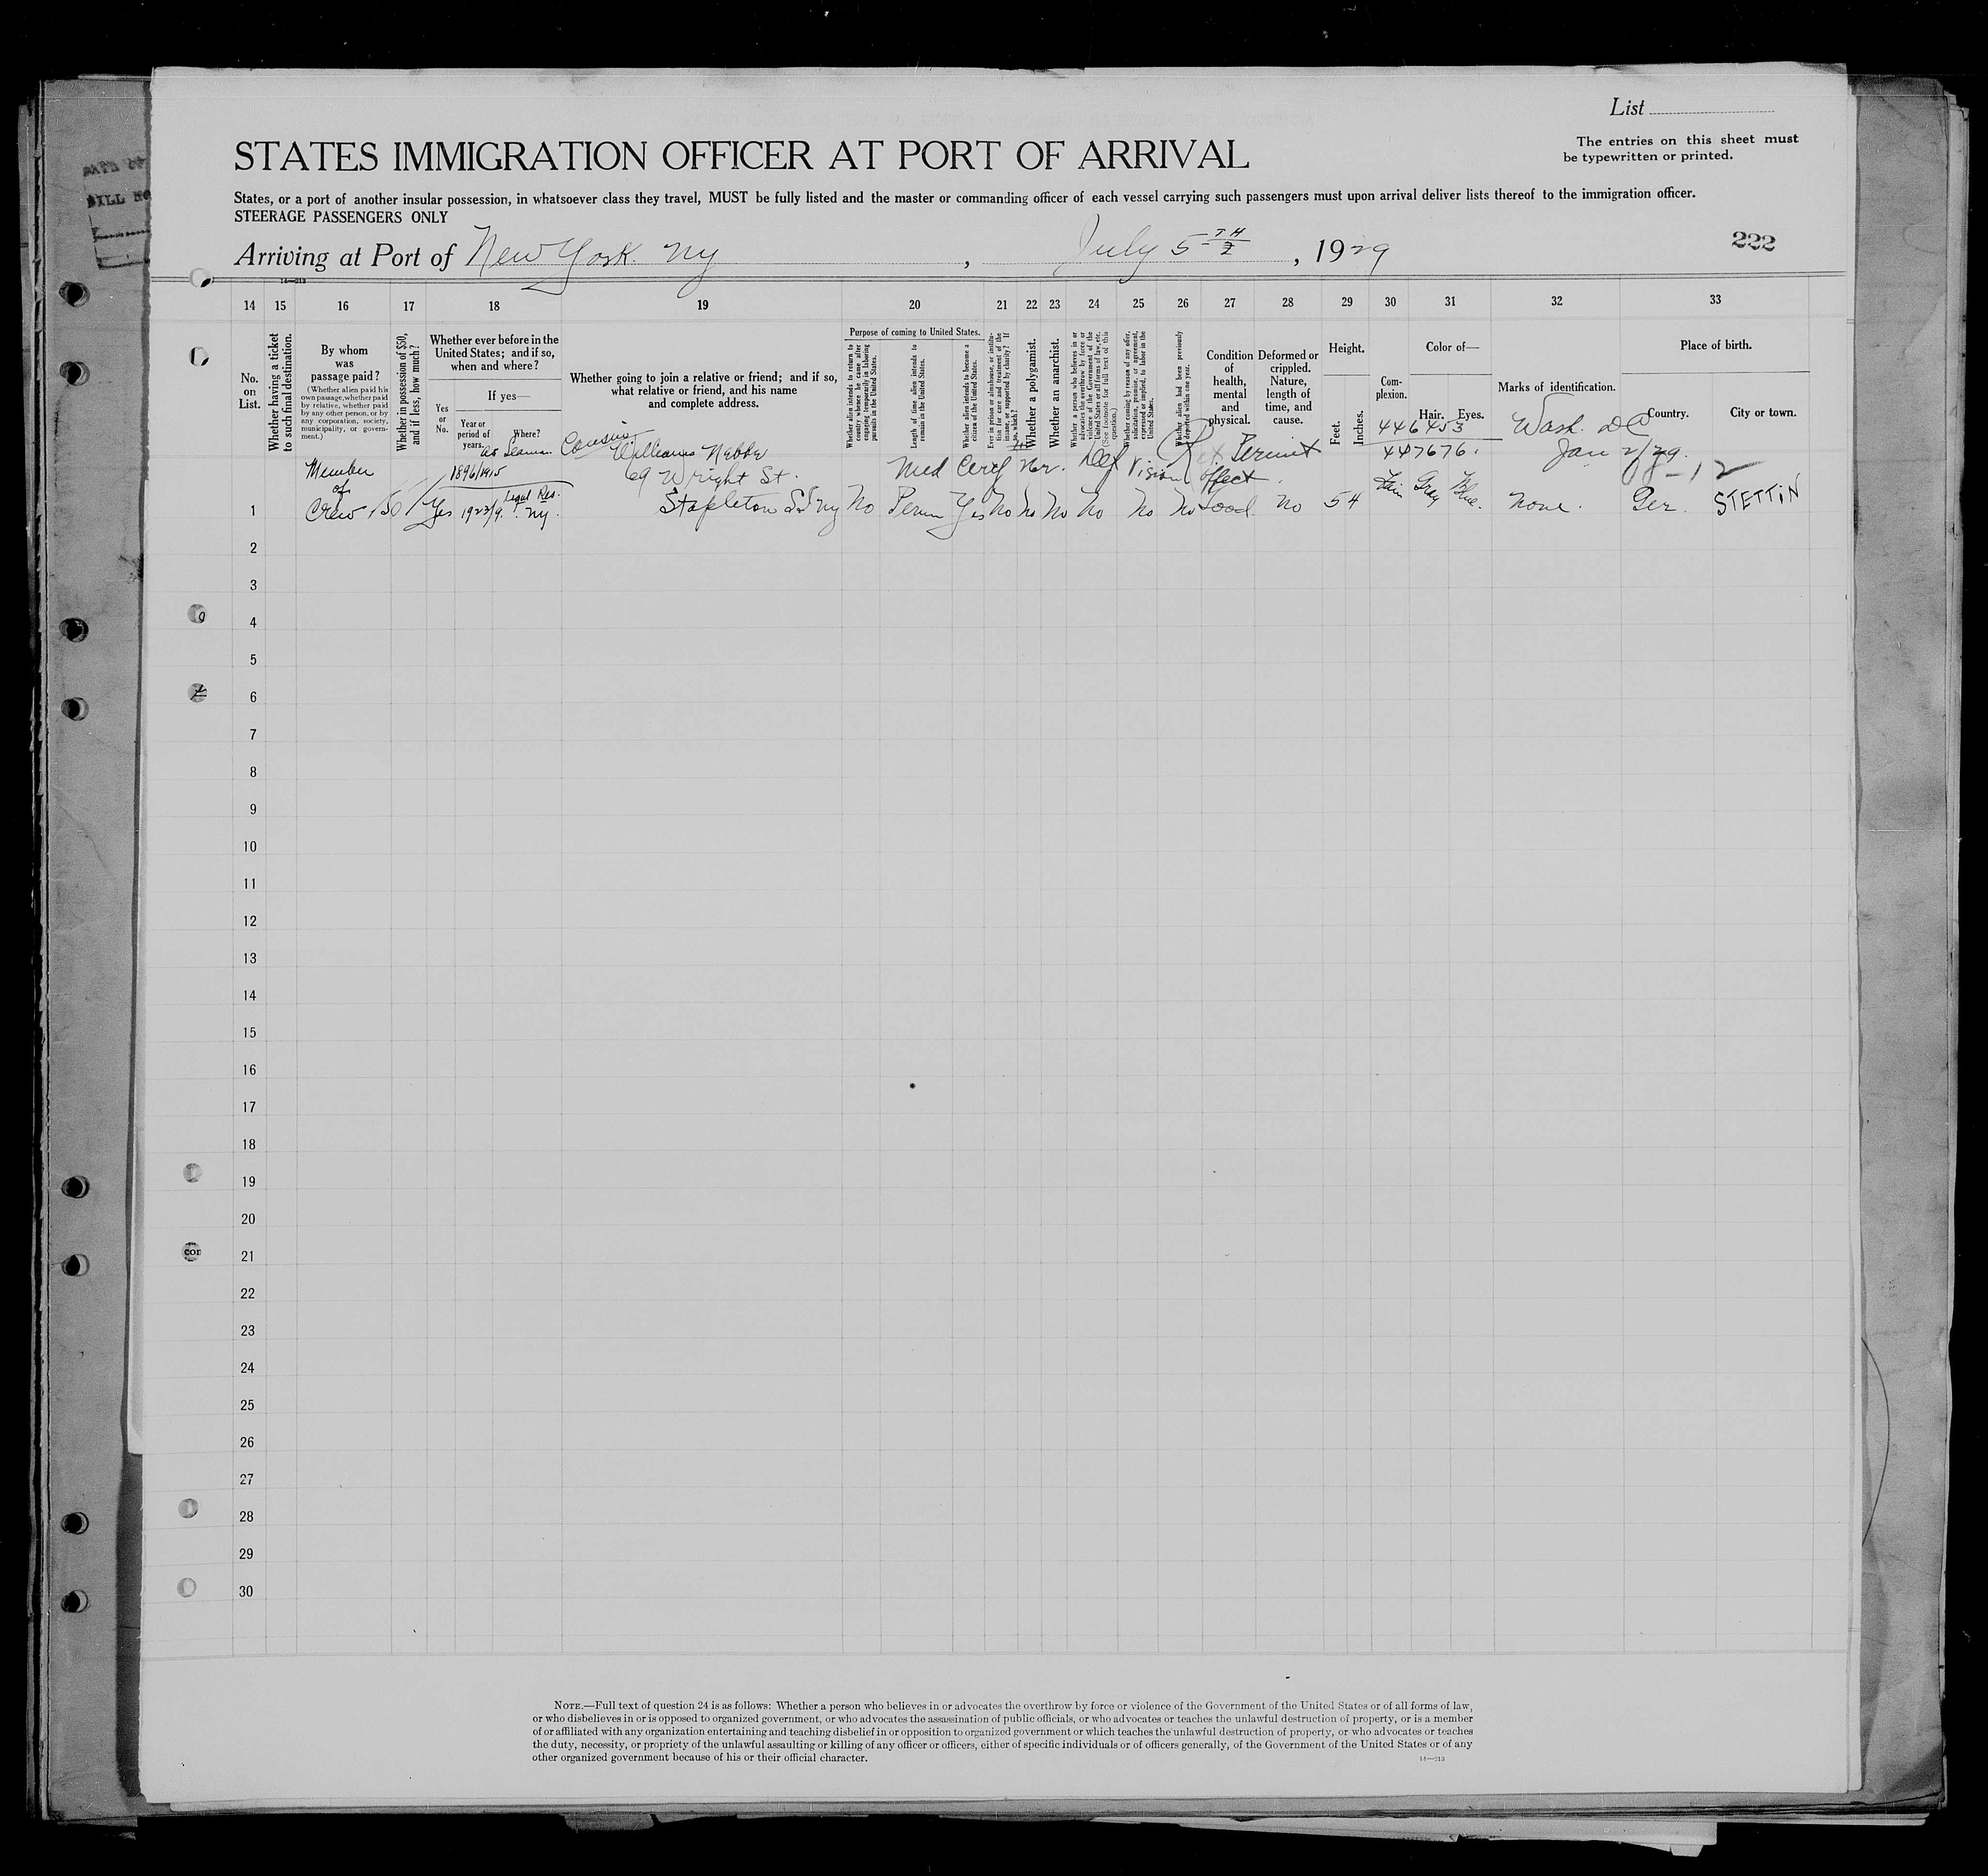 List
The entries on this sheet must
be typewritten or printed.
STATES IMMIGRATION OFFICER AT PORT OF ARRIVAL
States, or a port of another insular possession, in whatsoever class they travel, MUST be fully listed and the master or commanding officer of each vessel carrying such passengers must upon arrival deliver lists thereof to the immigration officer.
STEERAGE PASSENGERS ONLY
Arriving at Port of New York. Ny , July 5 TH , 1929
222
14—213
14 15 16 17 18 19 20 21 22 23 24 25 26 27 28 29 30 31 32 33
No.
on
List.
Whether having a ticket
to such final destination.
By whom
was
passage paid?
(Whether alien paid his
own passage, whether paid
by relative, whether paid
by any other person, or by
any corporation, society,
municipality, or govern-
ment.)
Whether in possession of $50,
and if less, how much?
Whether ever before in the
United States; and if so,
when and where?
Yes
or
No.
If yes—
Year or
period of
years.
Where?
Whether going to join a relative or friend; and if so,
what relative or friend, and his name
and complete address.
Purpose of coming to United States.
Whether alien intends to return to
country whence he came after
engaging temporarily in laboring
pursuits in the United States.
Length of time alien intends to
remain in the United States.
Whether alien intends to become a
citizen of the United States.
Ever in prison or almshouse, or institu-
tion for care and treatment of the
insane, or supported by charity? If
so, which?
Whether a polygamist.
Whether an anarchist.
Whether a person who believes in or
advocates the overthrow by force or
violence of the Government of the
United States or all forms of law, etc.
(See footnote for full text of this
question.)
Whether coming by reason of any offer,
solicitation, promise, or agreement,
expressed or implied, to labor in the
United States.
Whether alien had been previously
deported within one year.
Condition
of
health,
mental
and
physical.
Deformed or
crippled.
Nature,
length of
time, and
cause.
Height.
Feet.
Inches.
Com-
plexion.
Color of—
Hair. Eyes.
Marks of identification.
Place of birth.
Country.
City or town.
as Seaman Cousin
Williams Nebbe
446453 Wash. DC
Ret. Permit 447676. Jan 2/29.
Member 1896/1915 69 Wright St. Med Certf Def Vision
of Legal Res.
1 Crew 50 Yes 1923/9. NY. Stapleton SI ny No Perm Yes No No No No No No Good. No 5 4 Fair Gray Blue. None. Ger. STETTiN
2
3
4
5
6
7
8
9
10
11
12
13
14
15
16
17
18
19
20
21
22
23
24
25
26
27
28
29
30
NOTE.—Full text of question 24 is as follows: Whether a person who believes in or advocates the overthrow by force or violence of the Government of the United States or of all forms of law,
or who disbelieves in or is opposed to organized government, or who advocates the assassination of public officials, or who advocates or teaches the unlawful destruction of property, or is a member
of or affiliated with any organization entertaining and teaching disbelief in or opposition to organized government or which teaches the unlawful destruction of property, or who advocates or teaches
the duty, necessity, or propriety of the unlawful assaulting or killing of any officer or officers, either of specific individuals or of officers generally, of the Government of the United States or of any
other organized government because of his or their official character.
14—213